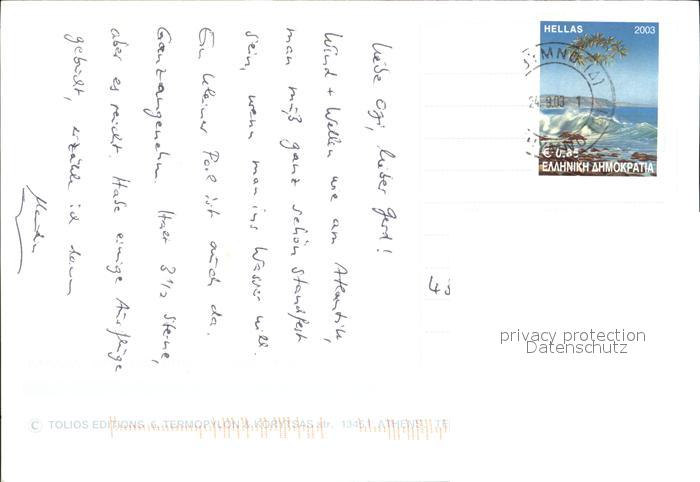 Liebe Ogi, lieber Gerd!
Wind + Wellen wie am Atlantik,
man muß ganz schön standfest
sein, wenn man ins Wasser will.
Ein kleiner Pool ist auch da.
Ganz angenehm. Hat 3 1/2 Sterne,
aber es reicht. Habe einige Ausflüge
gebucht, erzähle ich dann
HELLAS 2003
24.9.03
€ 0.85
ΕΛΛΗΝΙΚΗ ΔΗΜΟΚΡΑΤΙΑ
privacy protection
Datenschutz
© TOLIOS EDITIONS 6, TERMOPYLON & KORYTSAS str. 13451 ATHENS TE